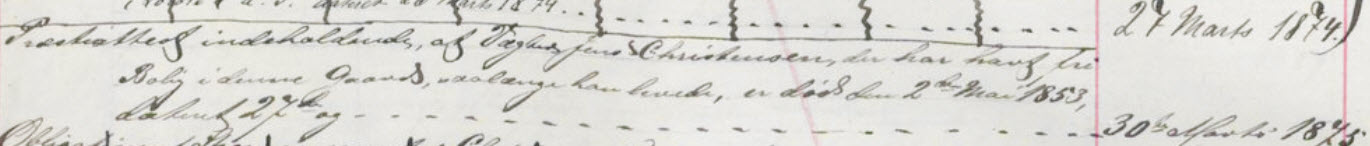 27 Marts 1874.)
Præsteattest indeholdende, at Vægter Jens Christensen, der har havt fri
Bolig i denne Gaard, saalænge han levede, er død den 2den Mai 1853,
dateret 27de og - - - - - - - - - - - - - - - 30te Marts 1875